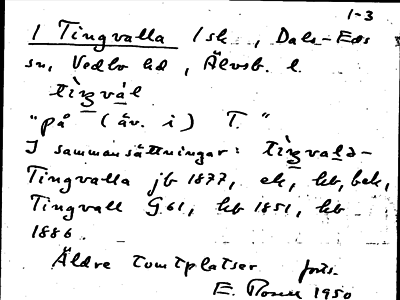 1-3
1 Tingvalla 1sk, Dals-Eds
sn, Vedbo hd, Älvsb. l.
tìŋvál
"på (äv. i) T."
I sammansättningar: tìŋvalə-
Tingvalla jb 1877, ek, kb, bek,
Tingvall G 61, kb 1851, kb
1886.
Äldre tomtplatser forts.
E. Rosell 1950